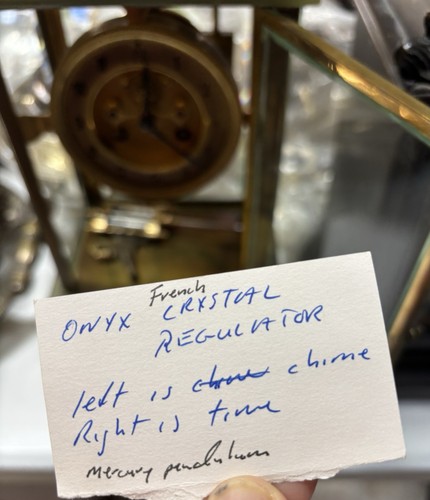 French
ONYX CRYSTAL
REGULATOR
left is chime
Right is time
mercury pendulum